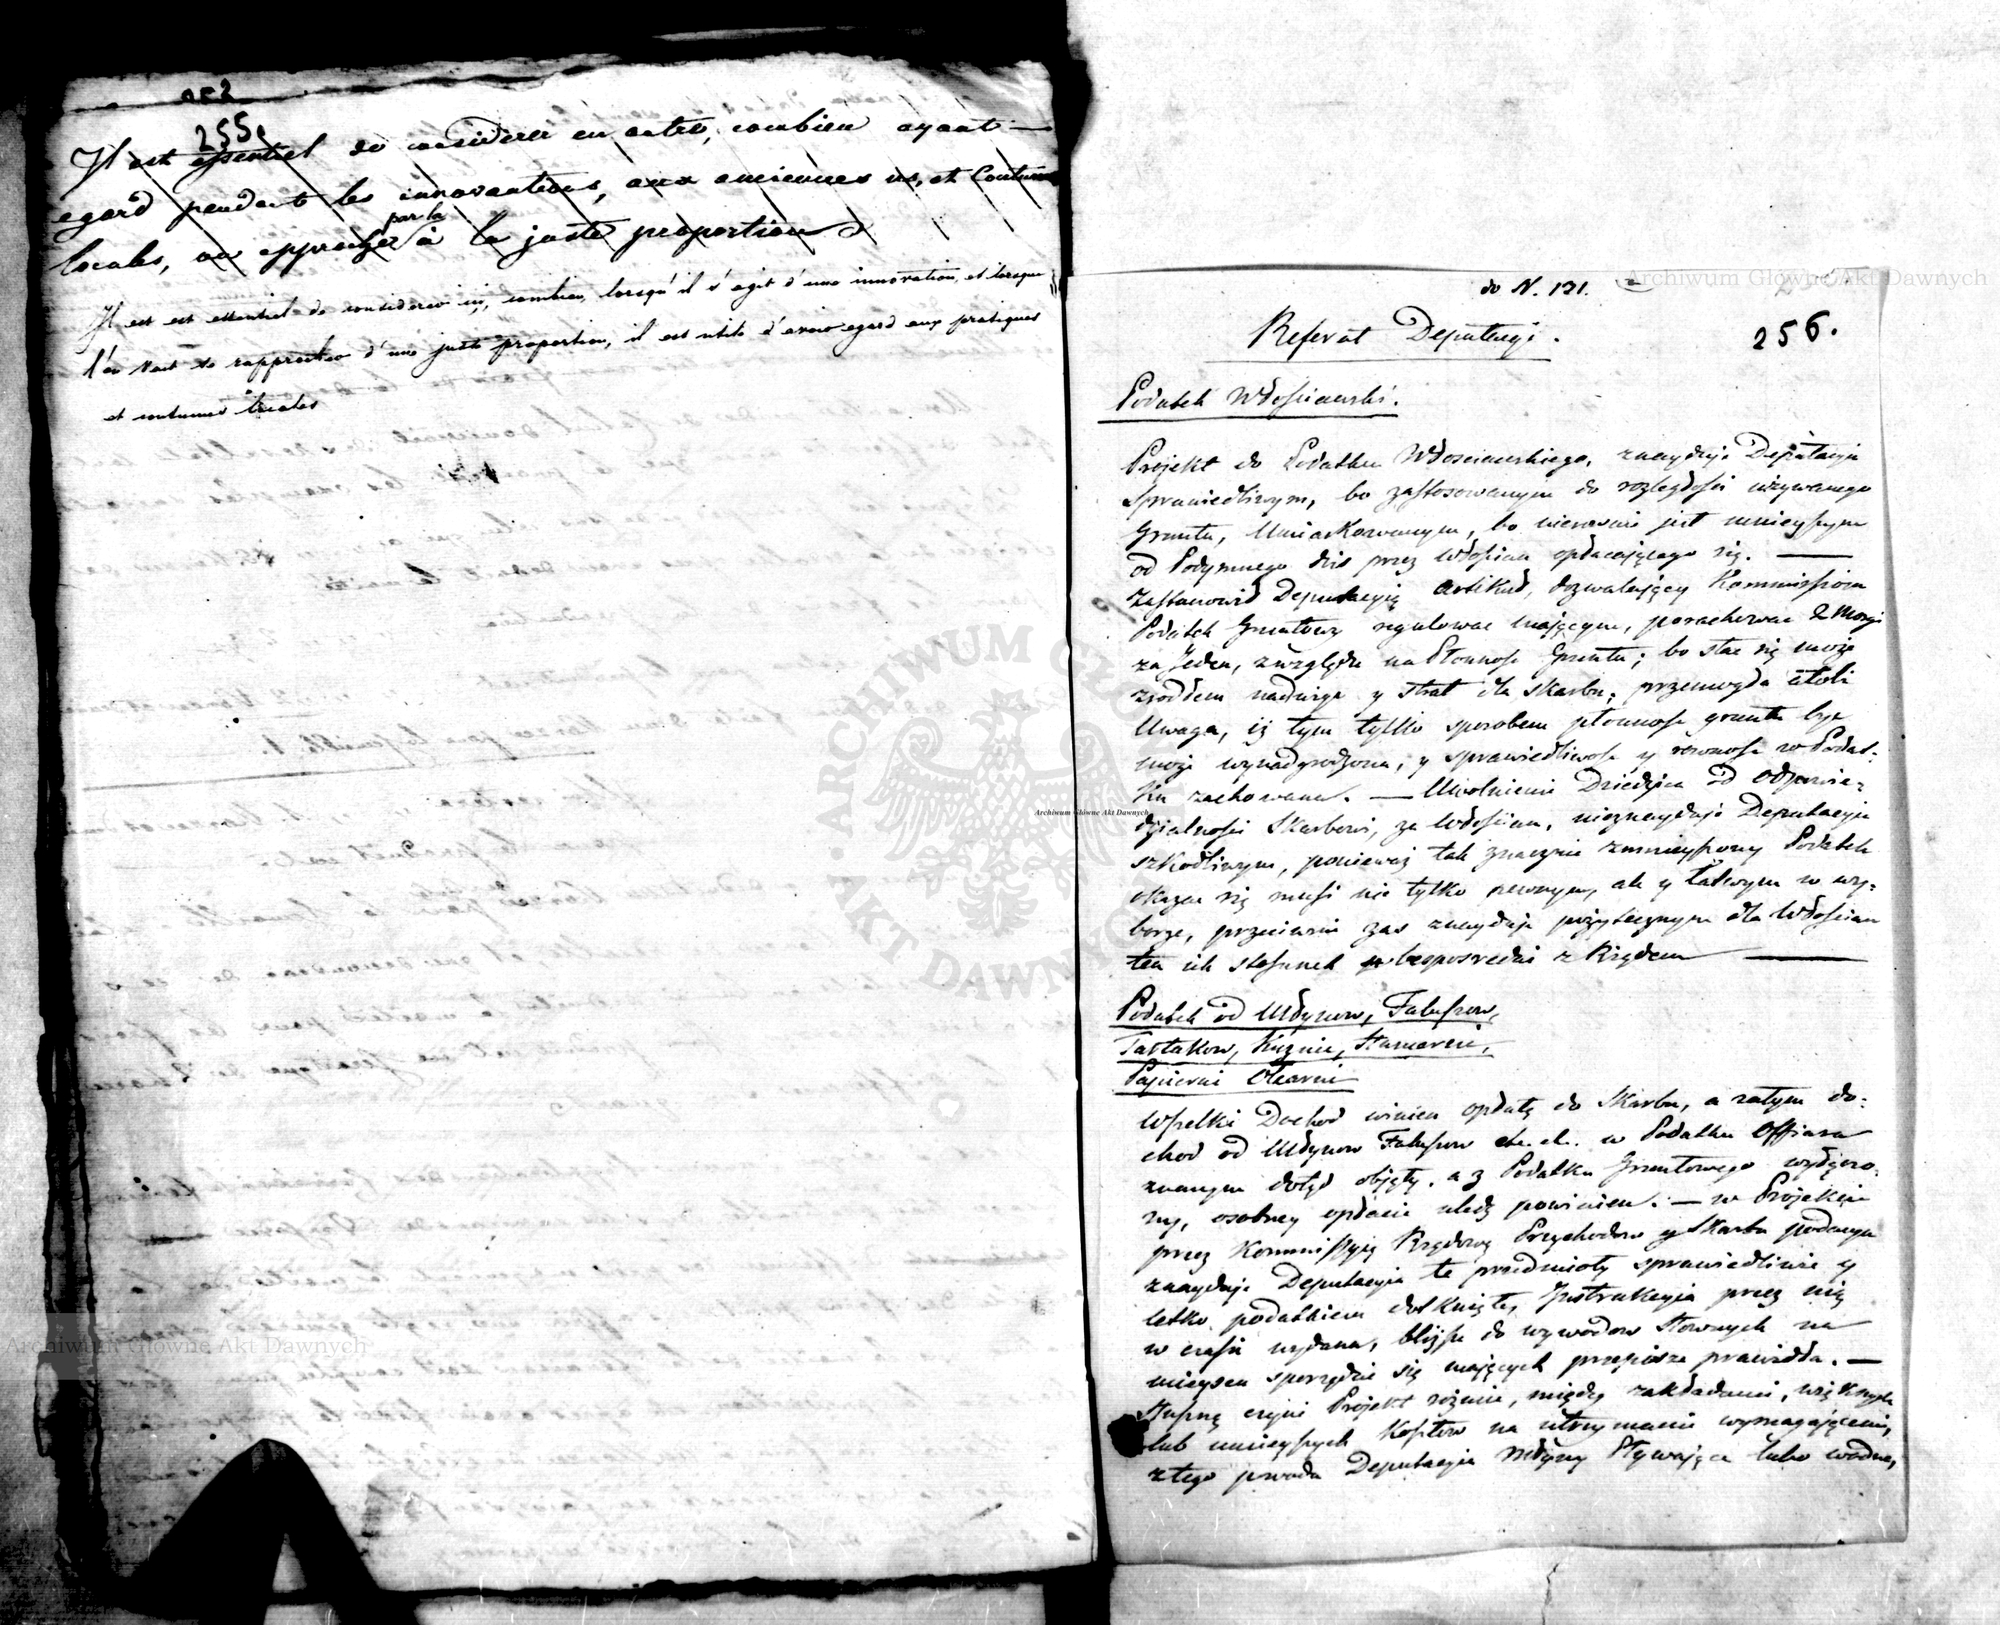 255.
Il est essentiel de considerer en outre, combien ayant
egard pendant les innovations, aux anciennes us, et Coutumes
par la
locales, on approche à la juste proportion
Il est essentiel de considerer ici, combien, lorsqu'il s'agit d'une innovation, et lorsque
l'on veut se rapprocher d'une juste proportion, il est utile d'avoir egard aux pratiques
et coutumes locales
do N. 121.
256.
Referat Deputacyi.
Podatek Włościański.
Projekt do Podatku Włosciańskiego, znayduje Deputacya
Sprawiedliwym, bo zastosowanym do rozległości używanego
Gruntu, Umiarkowanym, bo nierownie jest mnieyszym
od Podymnego dziś przez Włościan opłacaiącego się.
Zastanowił Deputacyią Artikuł, dozwalaiący Kommissiom
Podatek Gruntowy regulowac maiącym, porachowac 2 Morgi
za Jeden, z względu na Płonnosc Gruntu; bo stac się może
zrodłem naduzyc y strat dla Skarbu; przemogła atoli
Uwaga, iż tym tylko sposobem płonnosc gruntu byc
może wynadgrodzona, y sprawiedliwosc y rownosc w Podat-
ku zachowana. — Uwolnienie Dziedzica od Odpowie-
dzialności Skarbowi, za Włościan, nieznayduje Deputacya
szkodliwym, ponieważ tak znacznie zmnieyszony Podatek
okazac się musi nie tylko pewnym, ale y łatwym w wy-
borze, przeciwnie zas znayduje pożytecznym dla Włościan
ten ich stosunek bezposredni z Rządem
Podatek od Młynow, Foluszow,
Tartakow, Kuźnic, Hamerni,
Papierni Olearni
Wszelki Dochod winien opłatę do Skarbu, a zatym do-
chod od Młynow Foluszow etc. etc. w Podatku Offiara
zwanym dotąd objęty, a z Podatku Gruntowego wyłączo-
ny, osobney opłacie uledz powinien. — w Projekcie
przez Kommissyią Rządową Przychodow y Skarbu podanym
znayduje Deputacyia te przedmioty sprawiedliwie y
letko podatkiem dotknięte, Instrukcyia przez nię
w czasie wydana, bliższe do wywodow słownych na
mieyscu sporządzic się maiących przepisze prawidła. —
Słuszną czyni Projekt rożnicę, między zakładami, większych
lub mnieyszych Kosztow na utrzymanie wymagaiącemi,
z tego powodu Deputacyia Młyny Pływaiące lubo wodne,